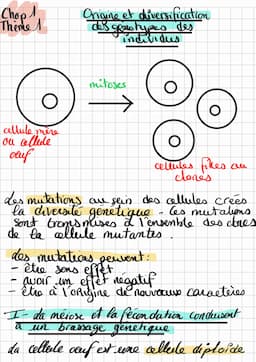 Chap 1
Thème 1
Origine et diversification
des génotypes des
individus
mitoses
cellule mère
ou cellule
oeuf
cellules filles ou
clones
Les mutations au sein des cellules créés
la diversité génétique - les mutations
sont transmises à l'ensemble des clones
de la cellule mutantes.
Les mutations peuvent:
- être sans effet
- avoir un effet négatif
- être à l'origine de nouveaux caractères
I - La méiose et la fécondation conduisent
à un brassage génétique
La cellule oeuf est une cellule diploïde